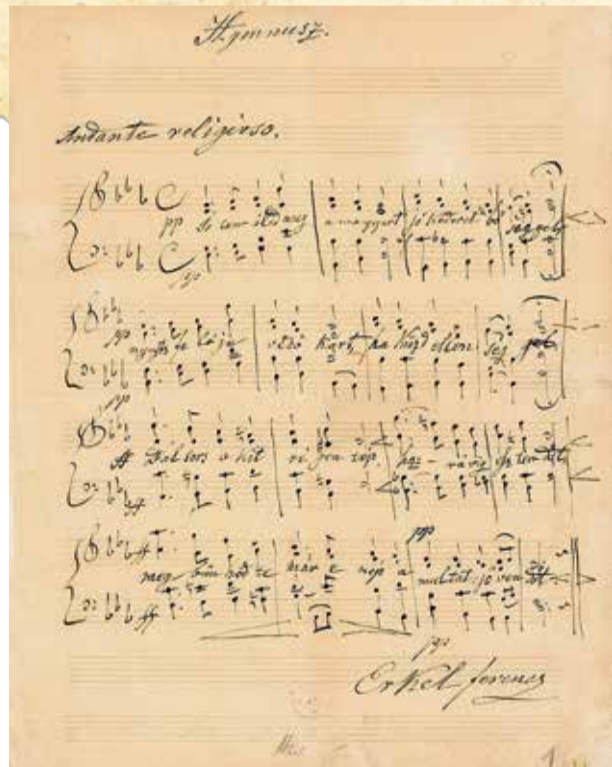 Hymnusz.
Andante religioso.
pp
a magyart jó kedvvel bő séggel
pp
pp
nyújts fe léje védő kart, ha küzd ellen ség gel
pp
ff Bal sors a kit ré gen tép, hoz - rá víg esztendőt
ff
ff pp
meg bűn hőd te már e nép a multat jövendőt
ff
pp
Erkel Ferencz